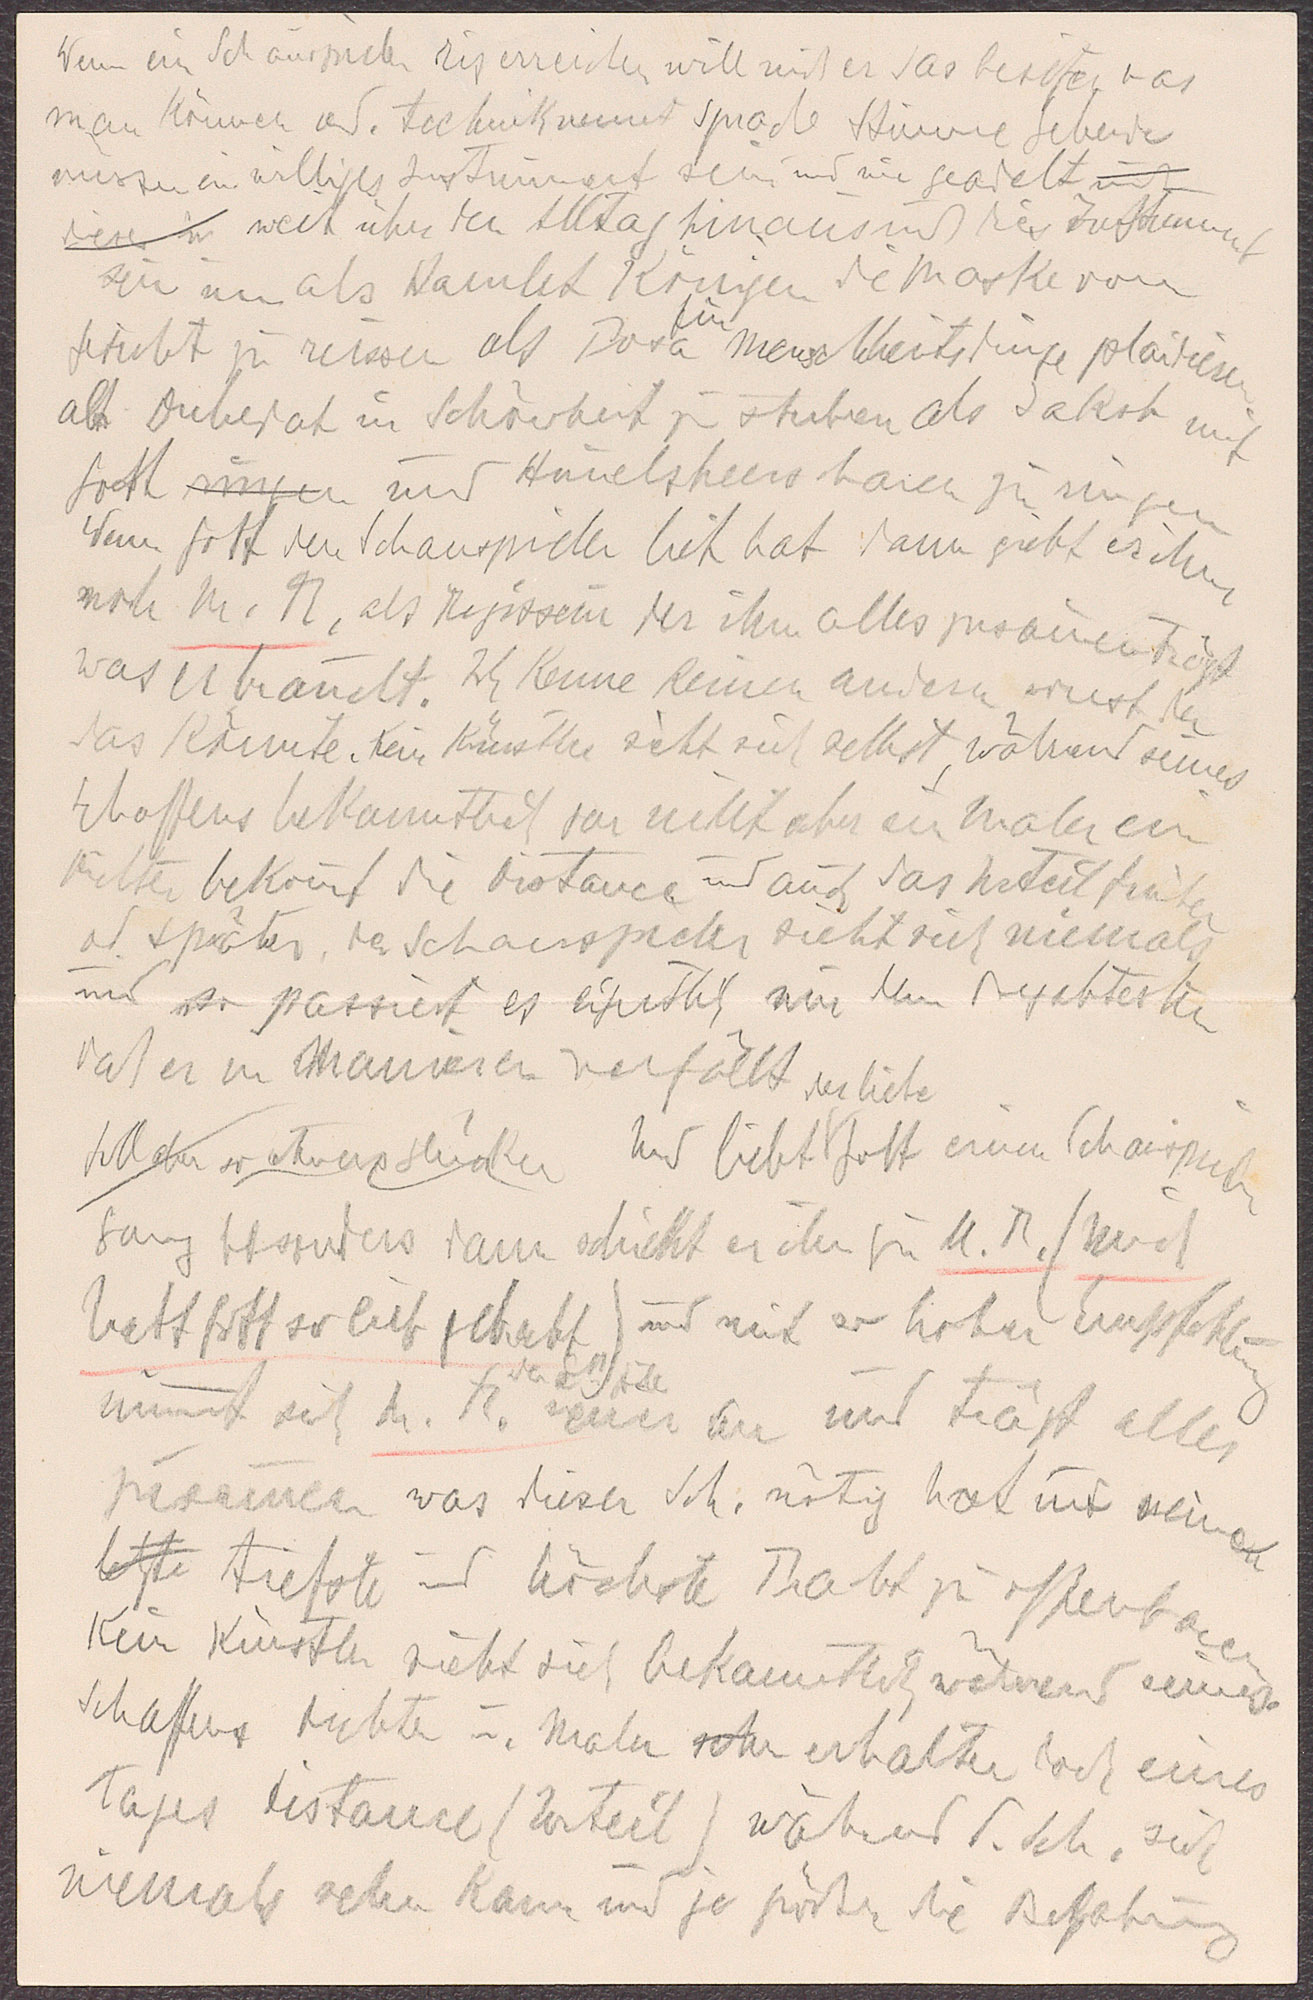 Wenn ein Schauspieler etwas erreichen will muß er das besitzen was
man Können od. Technik nennt Sprache Stimme Geberde
müssen ein williges Instrument sein und nie geadelt muß
dieses weit über den Alltag hinaus muß dies Instrument
sein um als Hamlet Königen die Maske vom
Gesicht zu reissen als Posa für Menschheitsdinge plaidieren
als Dubedat in Schönheit zu sterben als Jakob mit
Gott ringen und Himelsheerscharen zu ringen
Wenn Gott den Schauspieler lieb hat dann giebt er ihm
noch M. R, als Regisseur der ihm alles zusamenträgt
was er braucht. Ich kenne keinen andern sonst der
das könnte. Kein Künstler sieht sich selbst, während seines
Schaffens bekanntlich nicht aber ein Maler ein
Dichter bekomt die Distance und auch das Urteil früher
od später, der Schauspieler sieht sich niemals
und so passiert es eigentlich nur dem begabtesten
daß er in Manieren verfällt
Und liebt der liebe Gott einen Schauspieler
ganz besonders dann schickt er ihn zu M. R. (mich
hatt Gott so lieb gehabt) und mit so hoher Empfehlung
nimmt sich M. R. seiner an und trägt alles
zusamen was dieser Sch. nötig hat um seinen
letzte tiefste und höchste Kraft zu offenbaren
Kein Künstler sieht sich bekanntlich während seines
Schaffens Dichter u. Maler aber erhalten doch eines
Tages Distance (Urteil) während d. Sch. sich
niemals sehen kann und je größer die Begabung